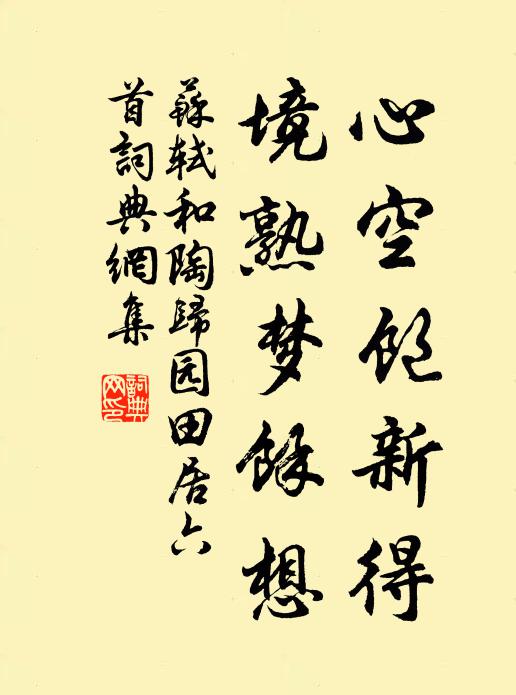 心空飽新得
境熟梦餘想
蘇軾和陶歸园田居六
首詞典網集
詞典
网印